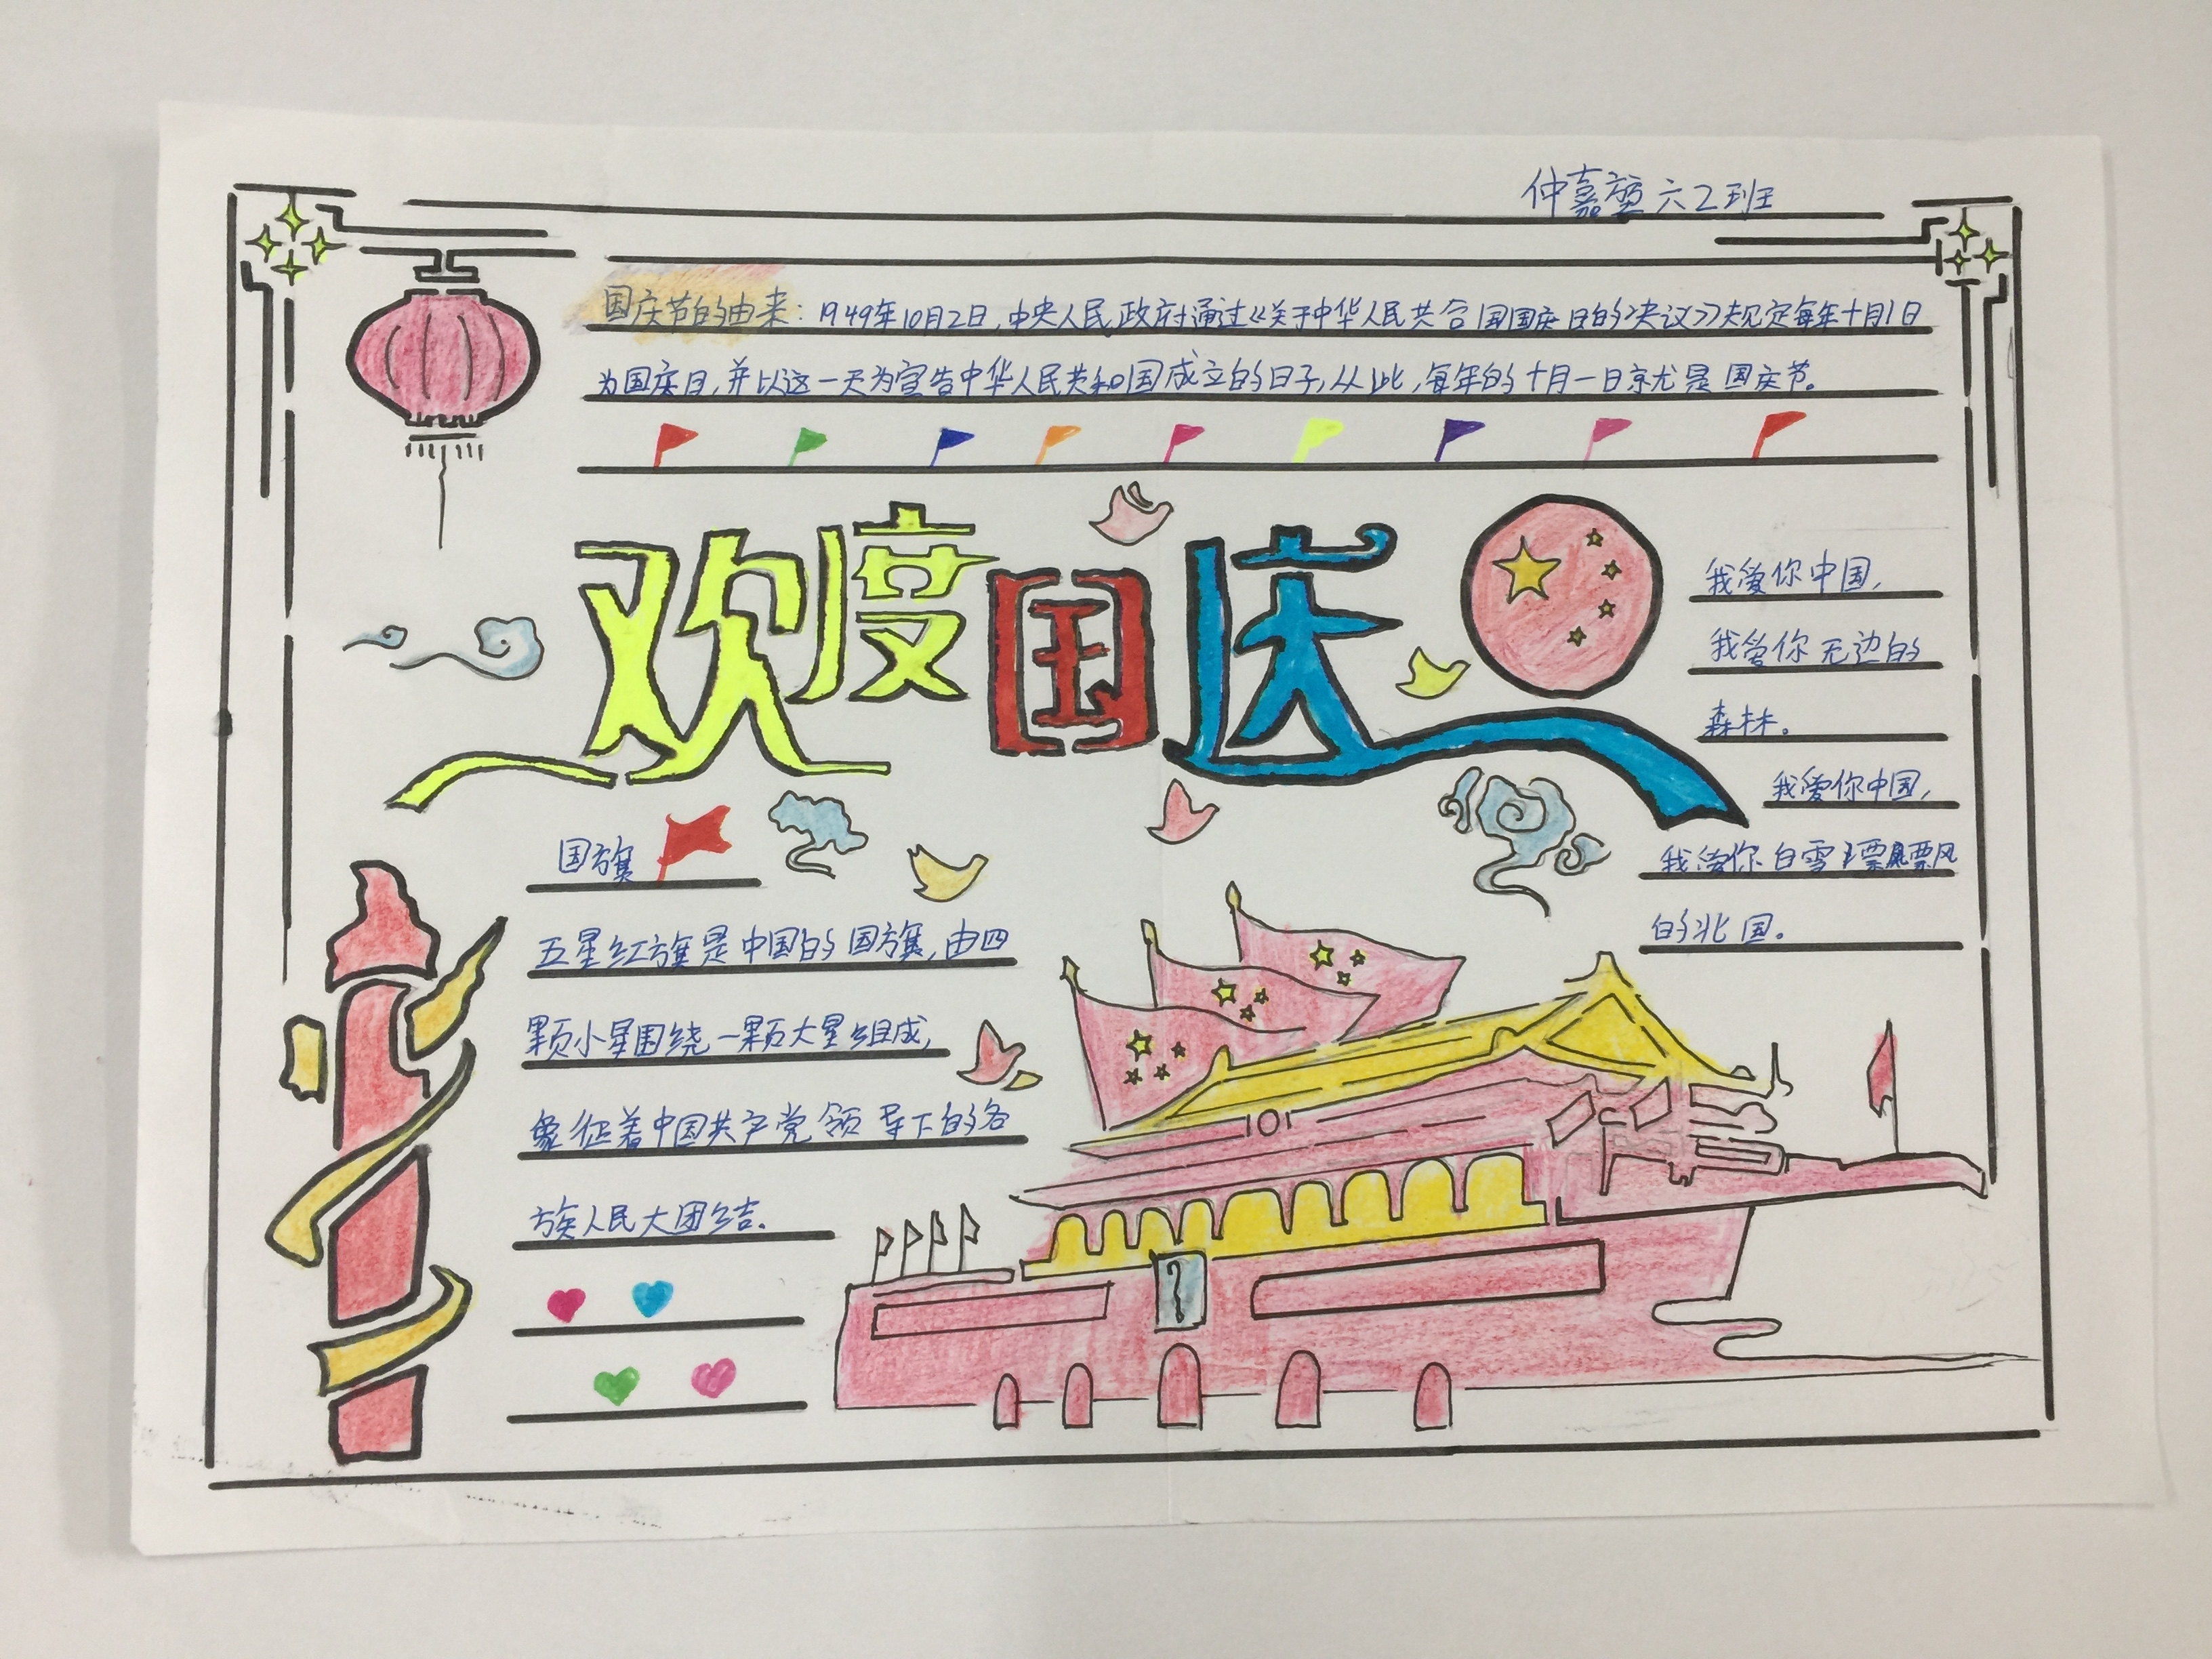 仲嘉 六2班
国庆节的由来：1949年10月2日,中央人民政府通过《关于中华人民共合国国庆日的决议》规定每年十月1日
为国庆日,并以这一天为宣告中华人民共和国成立的日子,从此,每年的十月一日就是国庆节。
欢度国庆
我爱你中国,
我爱你无边的
森林。
我爱你中国,
我爱你白雪飘
的北国。
国旗
五星红旗是中国的国旗,由四
颗小星围绕一颗大星组成,
象征着中国共产党领导下的各
族人民大团结.